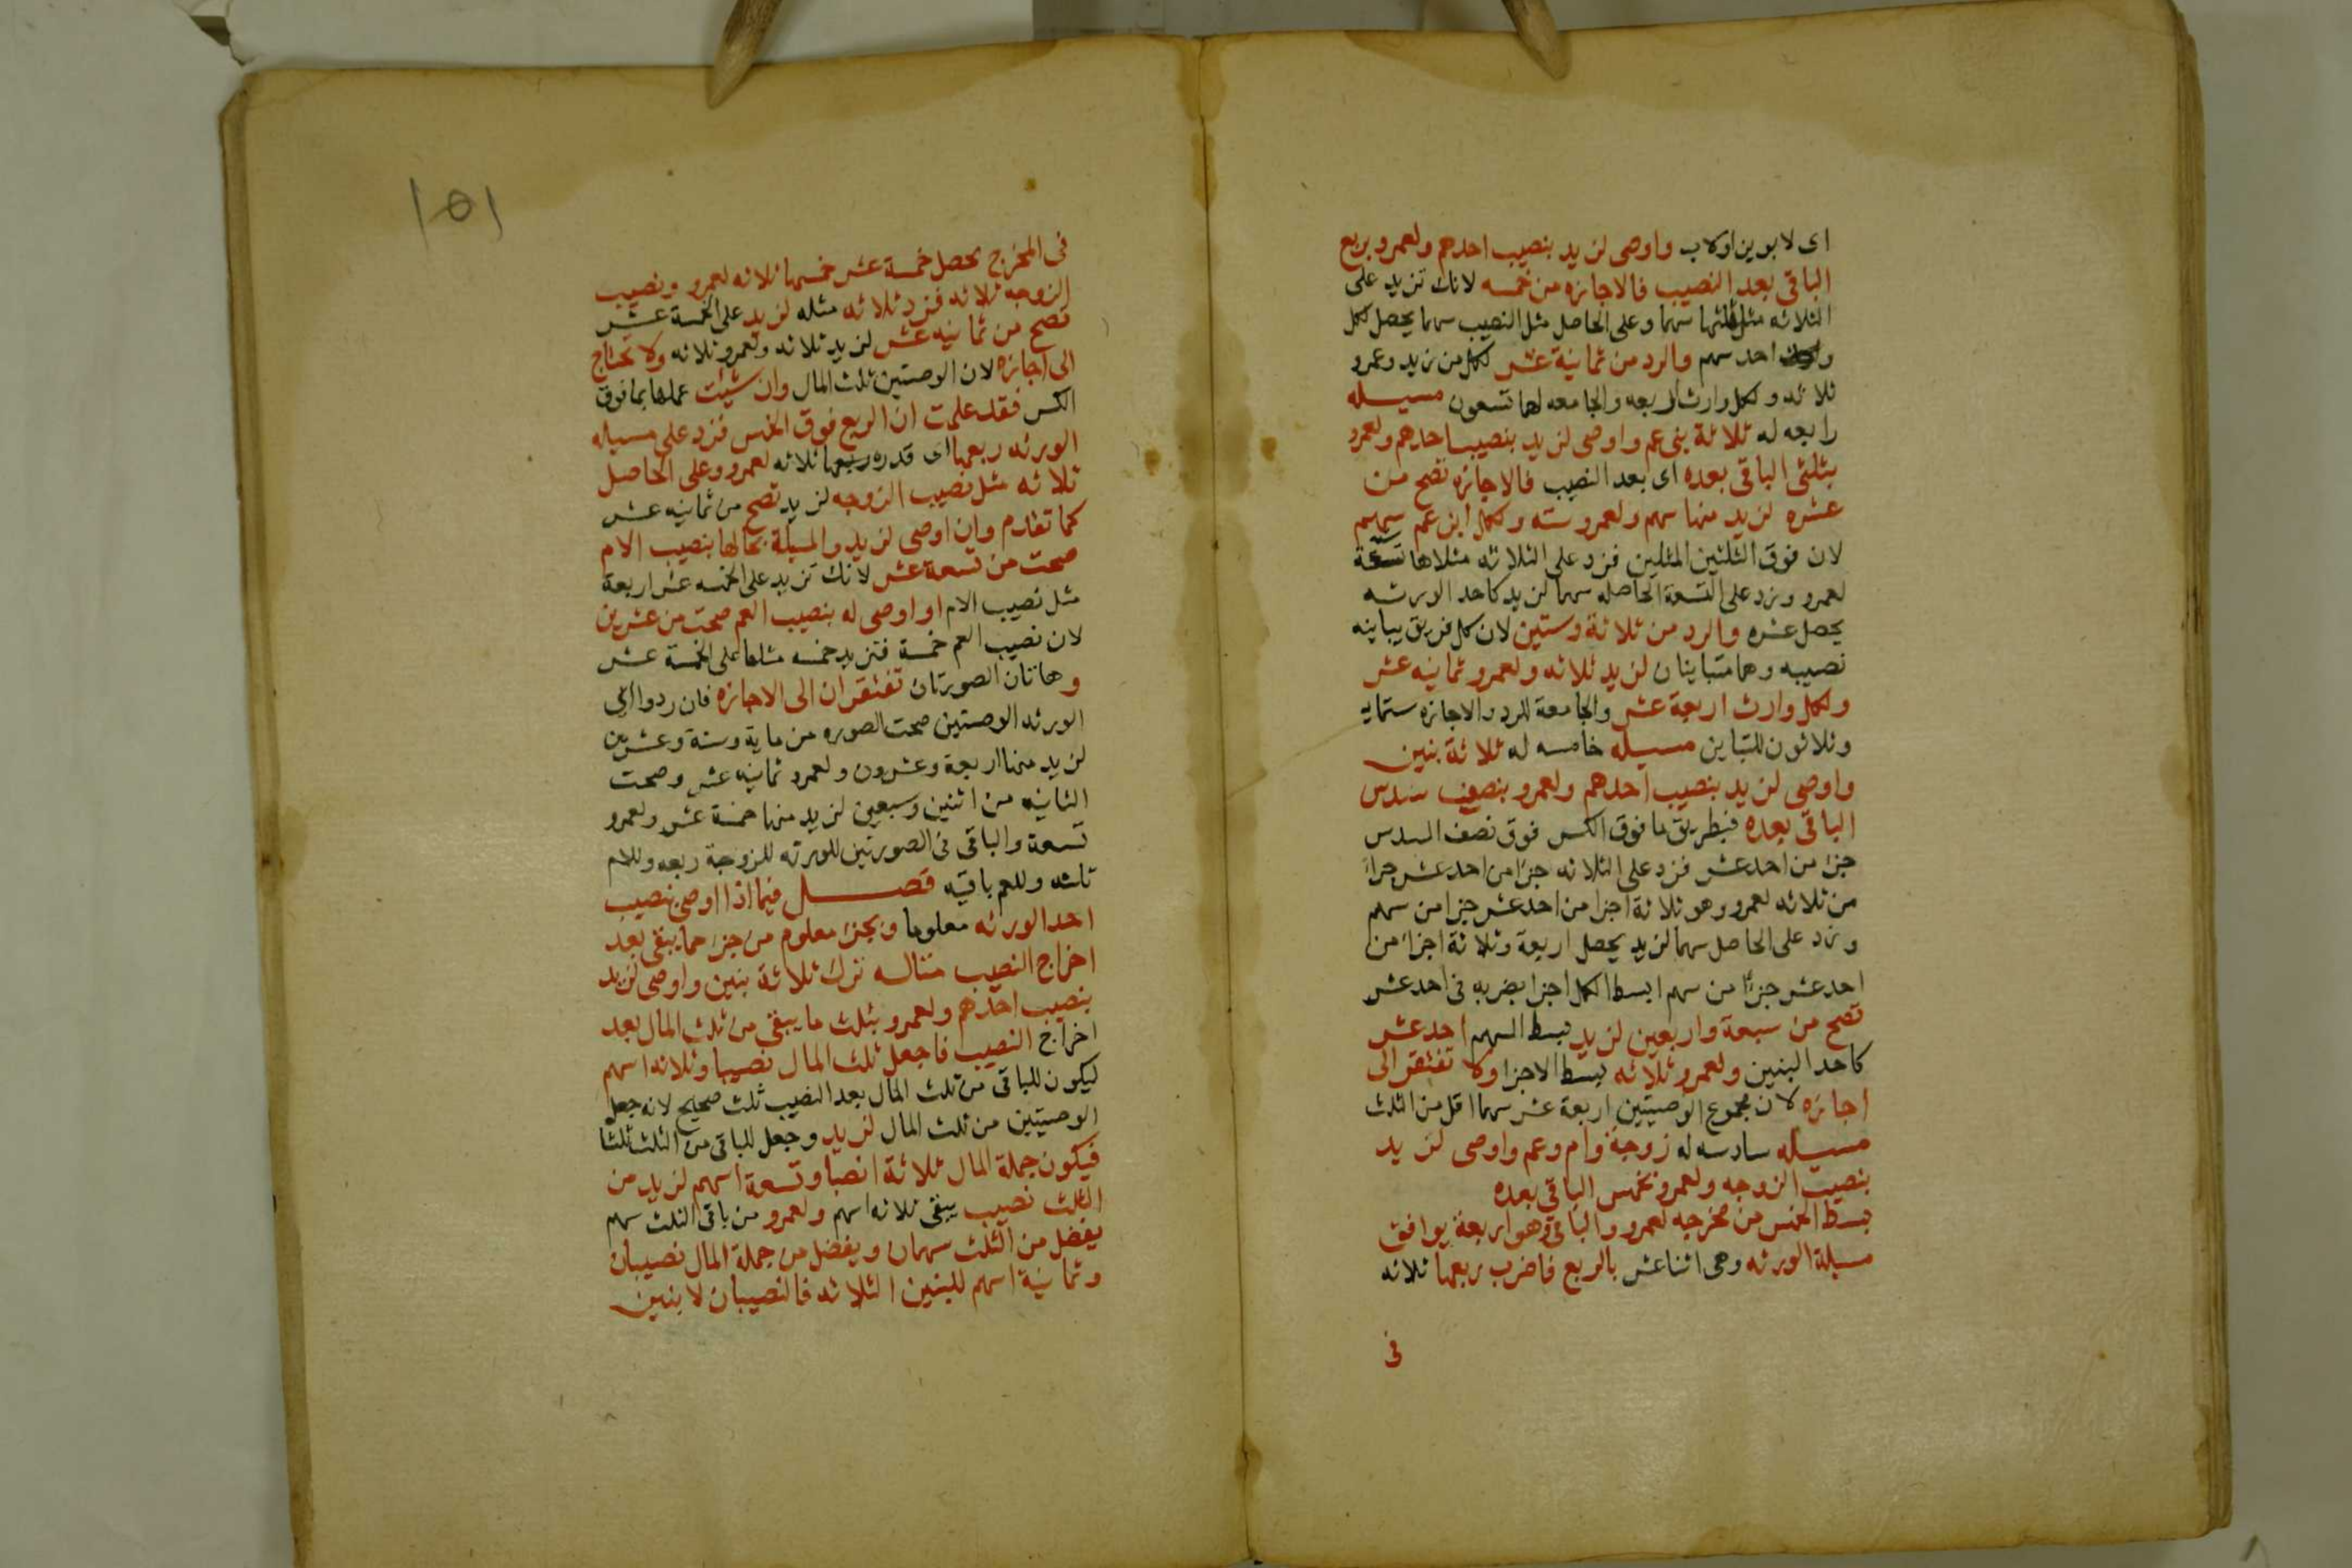 اى لابوين اولاب واوصى لزيد بنصيب احدهم ولعمرو بربع
الباقى بعد النصيب فالاجازه من خمسه لانك تزيد على
الثلاثه مثل ثلثها سهما وعلى الحاصل مثل النصيب سهما يحصل لكل
واحد سهم والرد من ثمانية عشر لكل من زيد وعمرو
ثلاثه ولكل وارث اربعه والجامعه لهما تسعون مسيله
رابعه له ثلاثة بنى عم واوصى لزيد بنصيب احدهم ولعمرو
بثلثى الباقى بعده اى بعد النصيب فالاجازه تصح من
عشره لزيد منها سهم ولعمرو سته ولكل ابن عم سهم
لان فوق الثلثين المثلين فزد على الثلاثه مثلاها ستة
لعمرو وزد على التسعة الحاصله سهما لزيد كاحد الورثه
يحصل عشره والرد من ثلاثة وستين لان كل فريق يباينه
نصيبه وهما متباينان لزيد ثلاثه ولعمرو ثمانيه عشر
ولكل وارث اربعة عشر والجامعة للرد والاجازه ستمايه
وثلاثون للتباين مسيله خامسه له ثلاثة بنين
واوصى لزيد بنصيب احدهم ولعمرو بنصف سدس
الباقى بعده فبطريق ما فوق الكسر فوق نصف السدس
جزء من احد عشر فزد على الثلاثه جزءا من احد عشر جزاء
من ثلاثه لعمرو وهو ثلاثة اجزا من احد عشر جزا من سهم
وزد على الحاصل سهما لزيد يحصل اربعة وثلاثة اجزاء من
احد عشر جزءا من سهم ابسط الكل اجزا بضربه فى احد عشر
تصح من سبعة واربعين لزيد بسط السهم احد عشر
كاحد البنين ولعمرو ثلاثه بسط الاجزا ولا تفتقر الى
اجازه لان مجموع الوصيتين اربعة عشر سهما اقل من الثلث
مسيله سادسه له زوجة وام وعم واوصى لزيد
بنصيب الزوجه ولعمرو بخمس الباقى بعده
بسط الخمس من مخرجه لعمرو والباقى وهو اربعة يوافق
مسيلة الورثه وهى اثنا عشر بالربع فاضرب ربعها ثلاثه
فى
١٥١
فى المخرج يحصل خمسة عشر خمسها ثلاثه لعمرو ونصيب
الزوجه ثلاثه فزد ثلاثه مثله لزيد على الخمسة عشر
تصح من ثمانيه عشر لزيد ثلاثه ولعمرو ثلاثه ولا تحتاج
الى اجازه لان الوصيتين ثلث المال وان شيئت عملها بما فوق
الكسر فقد علمت ان الربع فوق الخمس فزد على مسيله
الورثه ربعها اى قدر ربعها ثلاثه لعمرو وعلى الحاصل
ثلاثه مثل نصيب الزوجه لزيد تصح من ثمانيه عشر
كما تقدم وان اوصى لزيد والمسيلة بحالها بنصيب الام
صحت من تسعة عشر لانك تزيد على الخمسه عشر اربعة
مثل نصيب الام او اوصى له بنصيب العم صحت من عشرين
لان نصيب العم خمسة فتزيد خمسه مثلها على الخمسة عشر
وهاتان الصورتان تفتقران الى الاجازه فان ردوا اى
الورثه الوصيتين صحت الصوره من ماية وستة وعشرين
لزيد منها اربعة وعشرون ولعمرو ثمانيه عشر وصحت
الثانيه من اثنين وسبعين لزيد منها خمسة عشر ولعمرو
تسعة والباقى فى الصورتين للورثه للزوجة ربعه وللام
ثلثه وللعم باقيه فصل فيما اذا اوصى بنصيب
احد الورثه معلوما وبجزء معلوم من جزء مما يبقى بعد
اخراج النصيب مثاله ترك ثلاثة بنين واوصى لزيد
بنصيب احدهم ولعمرو بثلث ما يبقى من ثلث المال بعد
اخراج النصيب فاجعل ثلث المال نصيبا وثلاثه اسهم
ليكون للباقى من ثلث المال بعد النصيب ثلث صحيح لانه جعل
الوصيتين من ثلث المال لزيد وجعل للباقى من الثلث ثلثا
فيكون جملة المال ثلاثة انصبا وتسعة اسهم لزيد من
الثلث نصيب يبقى ثلاثه اسهم ولعمرو من باقى الثلث سهم
يفضل من الثلث سهمان ويفضل من جملة المال نصيبان
وثمانية اسهم للبنين الثلاثه فالنصيبان لابنين